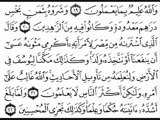 وَٱللَّهُ عَلِيمٌۢ بِمَا يَعْمَلُونَ ١٩ وَشَرَوْهُ بِثَمَنٍۭ بَخْسٍ
دَرَٰهِمَ مَعْدُودَةٍ وَكَانُوا۟ فِيهِ مِنَ ٱلزَّٰهِدِينَ ٢٠ وَقَالَ
ٱلَّذِى ٱشْتَرَىٰهُ مِن مِّصْرَ لِٱمْرَأَتِهِۦٓ أَكْرِمِى مَثْوَىٰهُ عَسَىٰٓ
أَن يَنفَعَنَآ أَوْ نَتَّخِذَهُۥ وَلَدًا وَكَذَٰلِكَ مَكَّنَّا لِيُوسُفَ
فِى ٱلْأَرْضِ وَلِنُعَلِّمَهُۥ مِن تَأْوِيلِ ٱلْأَحَادِيثِ وَٱللَّهُ غَالِبٌ عَلَىٰٓ
أَمْرِهِۦ وَلَٰكِنَّ أَكْثَرَ ٱلنَّاسِ لَا يَعْلَمُونَ ٢١ وَلَمَّا بَلَغَ
أَشُدَّهُۥٓ ءَاتَيْنَٰهُ حُكْمًا وَعِلْمًا وَكَذَٰلِكَ نَجْزِى ٱلْمُحْسِنِينَ ٢٢